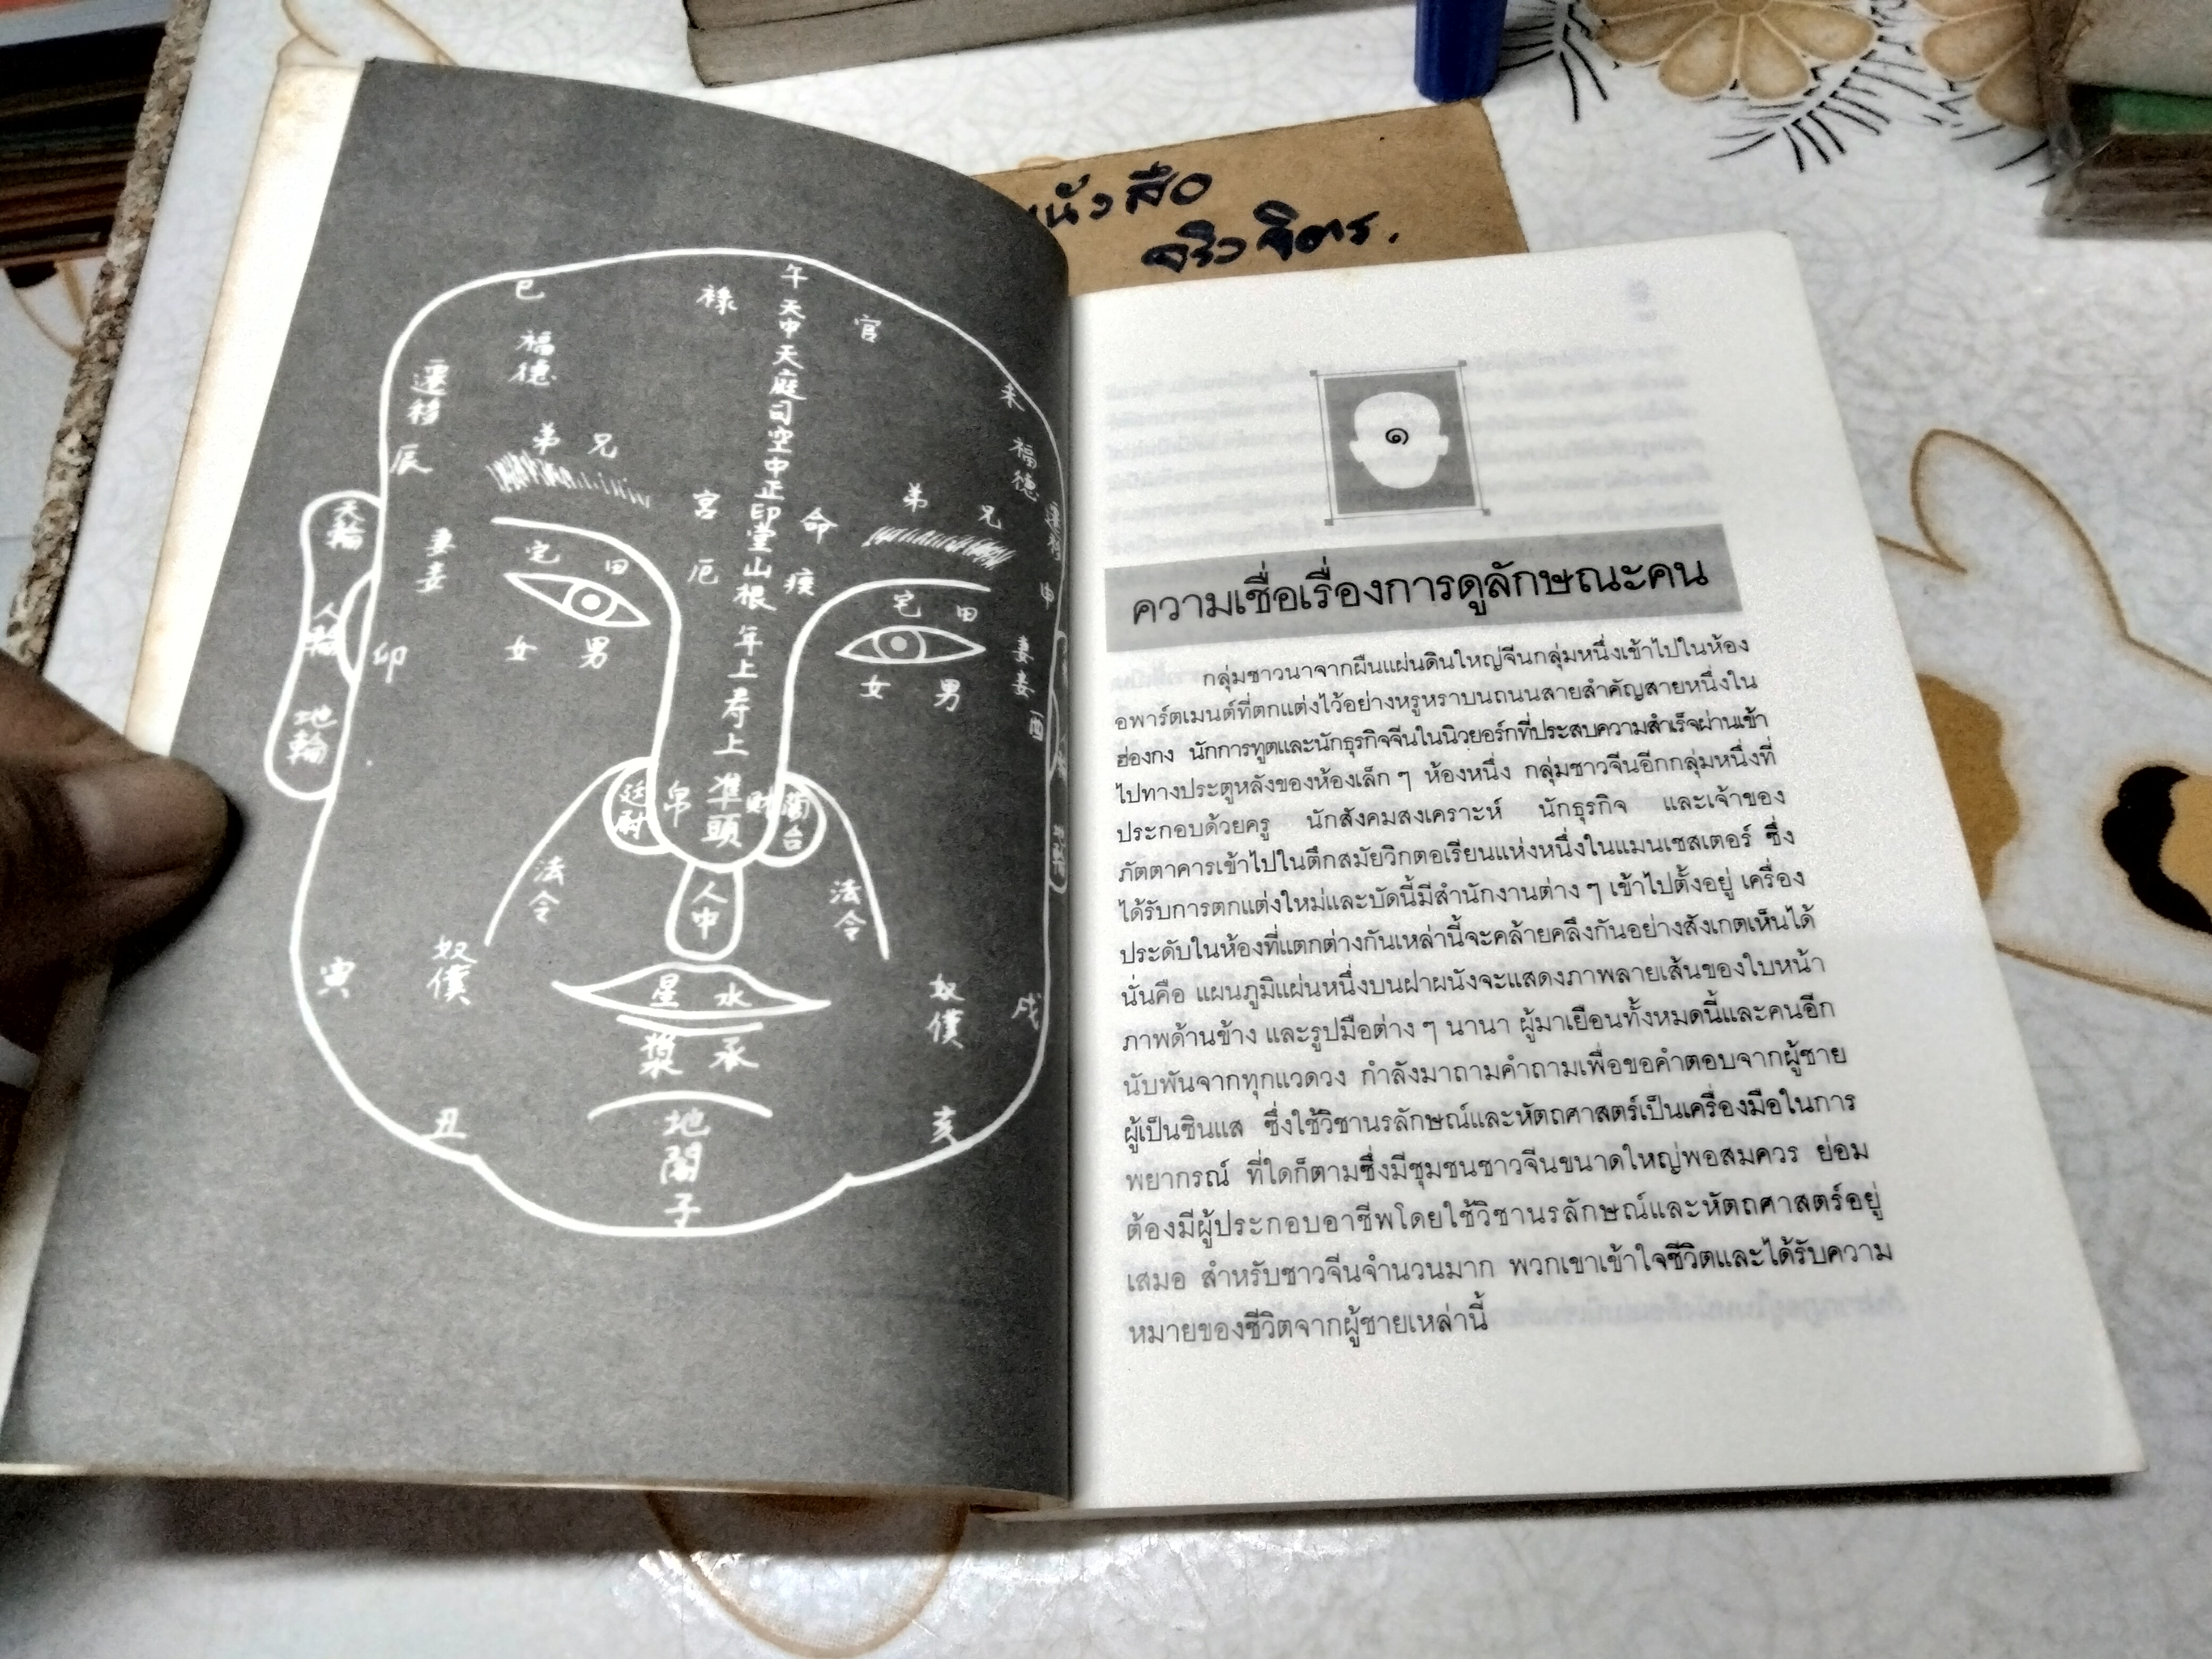 หนังสือ
จริงจิตร.
午
巳
禄
官
天中天庭司空中正印堂山根
年上寿上
準頭
福德
遷移
辰
弟 兄
未
福德
弟 兄
宮 命
厄 疾
天輪
人輪
地輪
妻妾
宅 田
宅 田
申
卯
女 男
女 男
妻妾
酉
廷尉
帛
財
蘭台
法令
法令
人中
寅
奴僕
奴僕
戌
星 水
漿 承
丑
亥
地閣
子
๑
ความเชื่อเรื่องการดูลักษณะคน
กลุ่มชาวนาจากผืนแผ่นดินใหญ่จีนกลุ่มหนึ่งเข้าไปในห้อง
อพาร์ตเมนต์ที่ตกแต่งไว้อย่างหรูหราบนถนนสายสำคัญสายหนึ่งใน
ฮ่องกง นักการทูตและนักธุรกิจจีนในนิวยอร์กที่ประสบความสำเร็จผ่านเข้า
ไปทางประตูหลังของห้องเล็ก ๆ ห้องหนึ่ง กลุ่มชาวจีนอีกกลุ่มหนึ่งที่
ประกอบด้วยครู นักสังคมสงเคราะห์ นักธุรกิจ และเจ้าของ
ภัตตาคารเข้าไปในตึกสมัยวิกตอเรียนแห่งหนึ่งในแมนเชสเตอร์ ซึ่ง
ได้รับการตกแต่งใหม่และบัดนี้มีสำนักงานต่าง ๆ เข้าไปตั้งอยู่ เครื่อง
ประดับในห้องที่แตกต่างกันเหล่านี้จะคล้ายคลึงกันอย่างสังเกตเห็นได้
นั่นคือ แผนภูมิแผ่นหนึ่งบนฝาผนังจะแสดงภาพลายเส้นของใบหน้า
ภาพด้านข้าง และรูปมือต่าง ๆ นานา ผู้มาเยือนทั้งหมดนี้และคนอีก
นับพันจากทุกแวดวง กำลังมาถามคำถามเพื่อขอคำตอบจากผู้ชาย
ผู้เป็นซินแส ซึ่งใช้วิชานรลักษณ์และหัตถศาสตร์เป็นเครื่องมือในการ
พยากรณ์ ที่ใดก็ตามซึ่งมีชุมชนชาวจีนขนาดใหญ่พอสมควร ย่อม
ต้องมีผู้ประกอบอาชีพโดยใช้วิชานรลักษณ์และหัตถศาสตร์อยู่
เสมอ สำหรับชาวจีนจำนวนมาก พวกเขาเข้าใจชีวิตและได้รับความ
หมายของชีวิตจากผู้ชายเหล่านี้